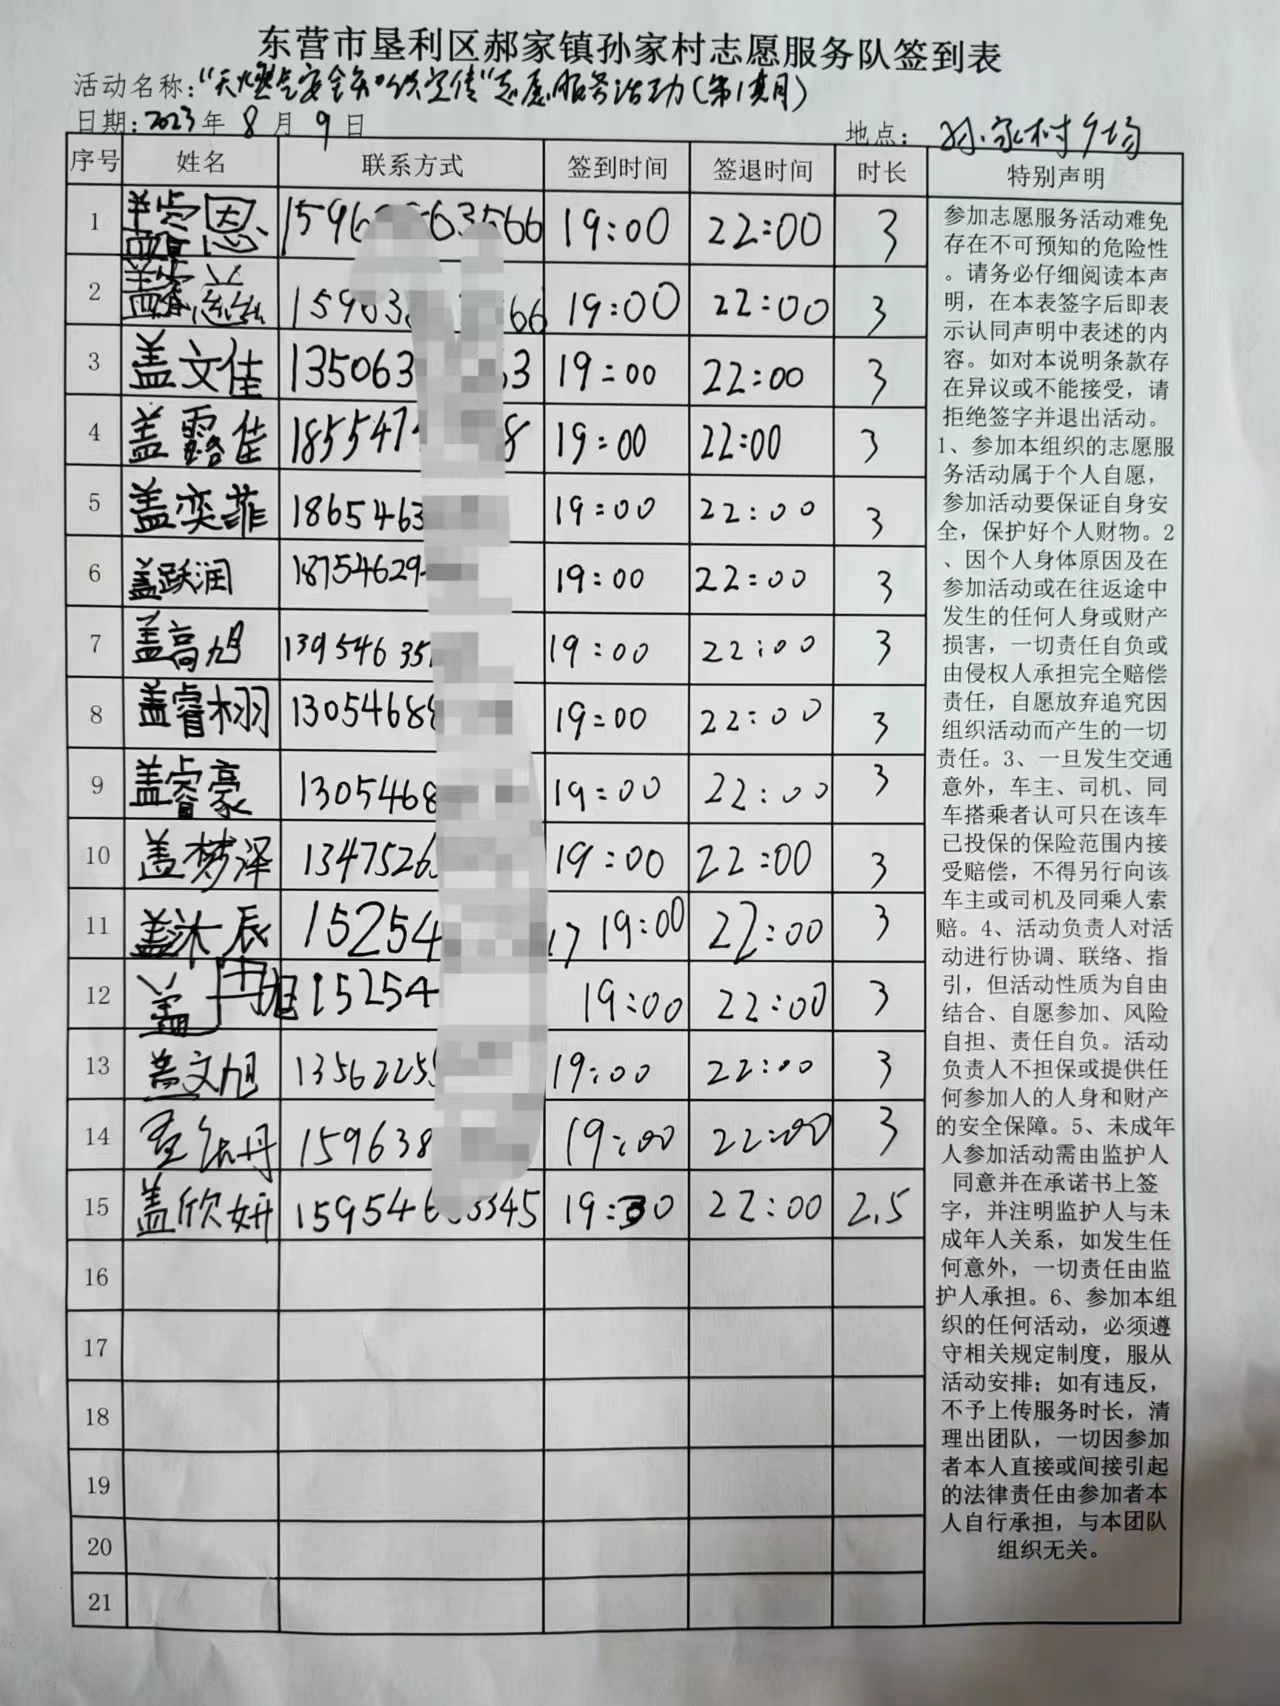 东营市垦利区郝家镇孙家村志愿服务队签到表
活动名称:"天燃气安全知识宣传"志愿服务活动(第1期)
日期:2023年 8 月 9 日
地点: 孙家村广场
序号 姓名 联系方式 签到时间 签退时间 时长 特别声明
1 盖睿恩 19:00 22:00 3
2 盖 19:00 22:00 3
3 盖文佳 135063 19:00 22:00 3
4 盖露佳 185547 19:00 22:00 3
5 盖奕菲 1865463 19:00 22:00 3
6 盖跃润 18754629 19:00 22:00 3
7 盖高旭 13954635 19:00 22:00 3
8 盖睿栩 1305468 19:00 22:00 3
9 盖睿豪 1305468 19:00 22:00 3
10 盖梦泽 1347526 19:00 22:00 3
11 盖沐辰 15254 17 19:00 22:00 3
12 盖 15254 19:00 22:00 3
13 盖文旭 1356225 19:00 22:00 3
14 159638 19:00 22:00 3
15 盖欣妍 159546 3345 19:30 22:00 2.5
16
17
18
19
20
21
参加志愿服务活动难免
存在不可预知的危险性
。请务必仔细阅读本声
明，在本表签字后即表
示认同声明中表述的内
容。如对本说明条款存
在异议或不能接受，请
拒绝签字并退出活动。
1、参加本组织的志愿服
务活动属于个人自愿，
参加活动要保证自身安
全，保护好个人财物。2
、因个人身体原因及在
参加活动或在往返途中
发生的任何人身或财产
损害，一切责任自负或
由侵权人承担完全赔偿
责任，自愿放弃追究因
组织活动而产生的一切
责任。3、一旦发生交通
意外，车主、司机、同
车搭乘者认可只在该车
已投保的保险范围内接
受赔偿，不得另行向该
车主或司机及同乘人索
赔。4、活动负责人对活
动进行协调、联络、指
引，但活动性质为自由
结合、自愿参加、风险
自担、责任自负。活动
负责人不担保或提供任
何参加人的人身和财产
的安全保障。5、未成年
人参加活动需由监护人
同意并在承诺书上签
字，并注明监护人与未
成年人关系，如发生任
何意外，一切责任由监
护人承担。6、参加本组
织的任何活动，必须遵
守相关规定制度，服从
活动安排；如有违反，
不予上传服务时长，清
理出团队，一切因参加
者本人直接或间接引起
的法律责任由参加者本
人自行承担，与本团队
组织无关。